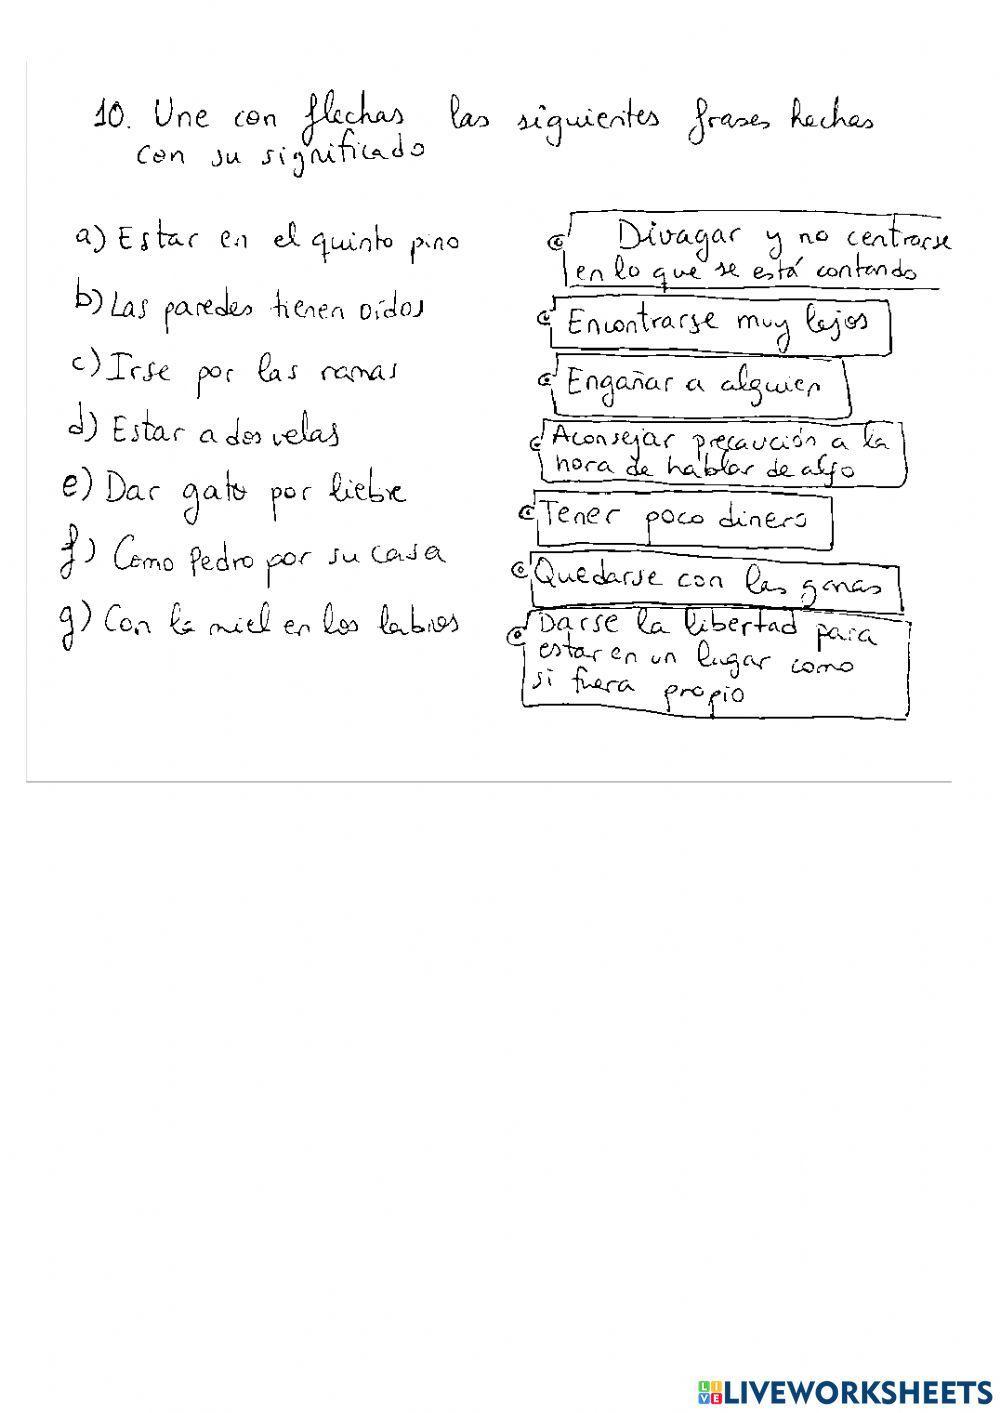 10. Une con flechas las siguientes frases hechas
con su significado
a) Estar en el quinto pino
b) Las paredes tienen oídos
c) Irse por las ramas
d) Estar a dos velas
e) Dar gato por liebre
f) Como Pedro por su casa
g) Con la miel en los labios
Divagar y no centrarse
en lo que se está contando
Encontrarse muy lejos
Engañar a alguien
Aconsejar precaución a la
hora de hablar de algo
Tener poco dinero
Quedarse con las ganas
Darse la libertad para
estar en un lugar como
si fuera propio
LIVEWORKSHEETS